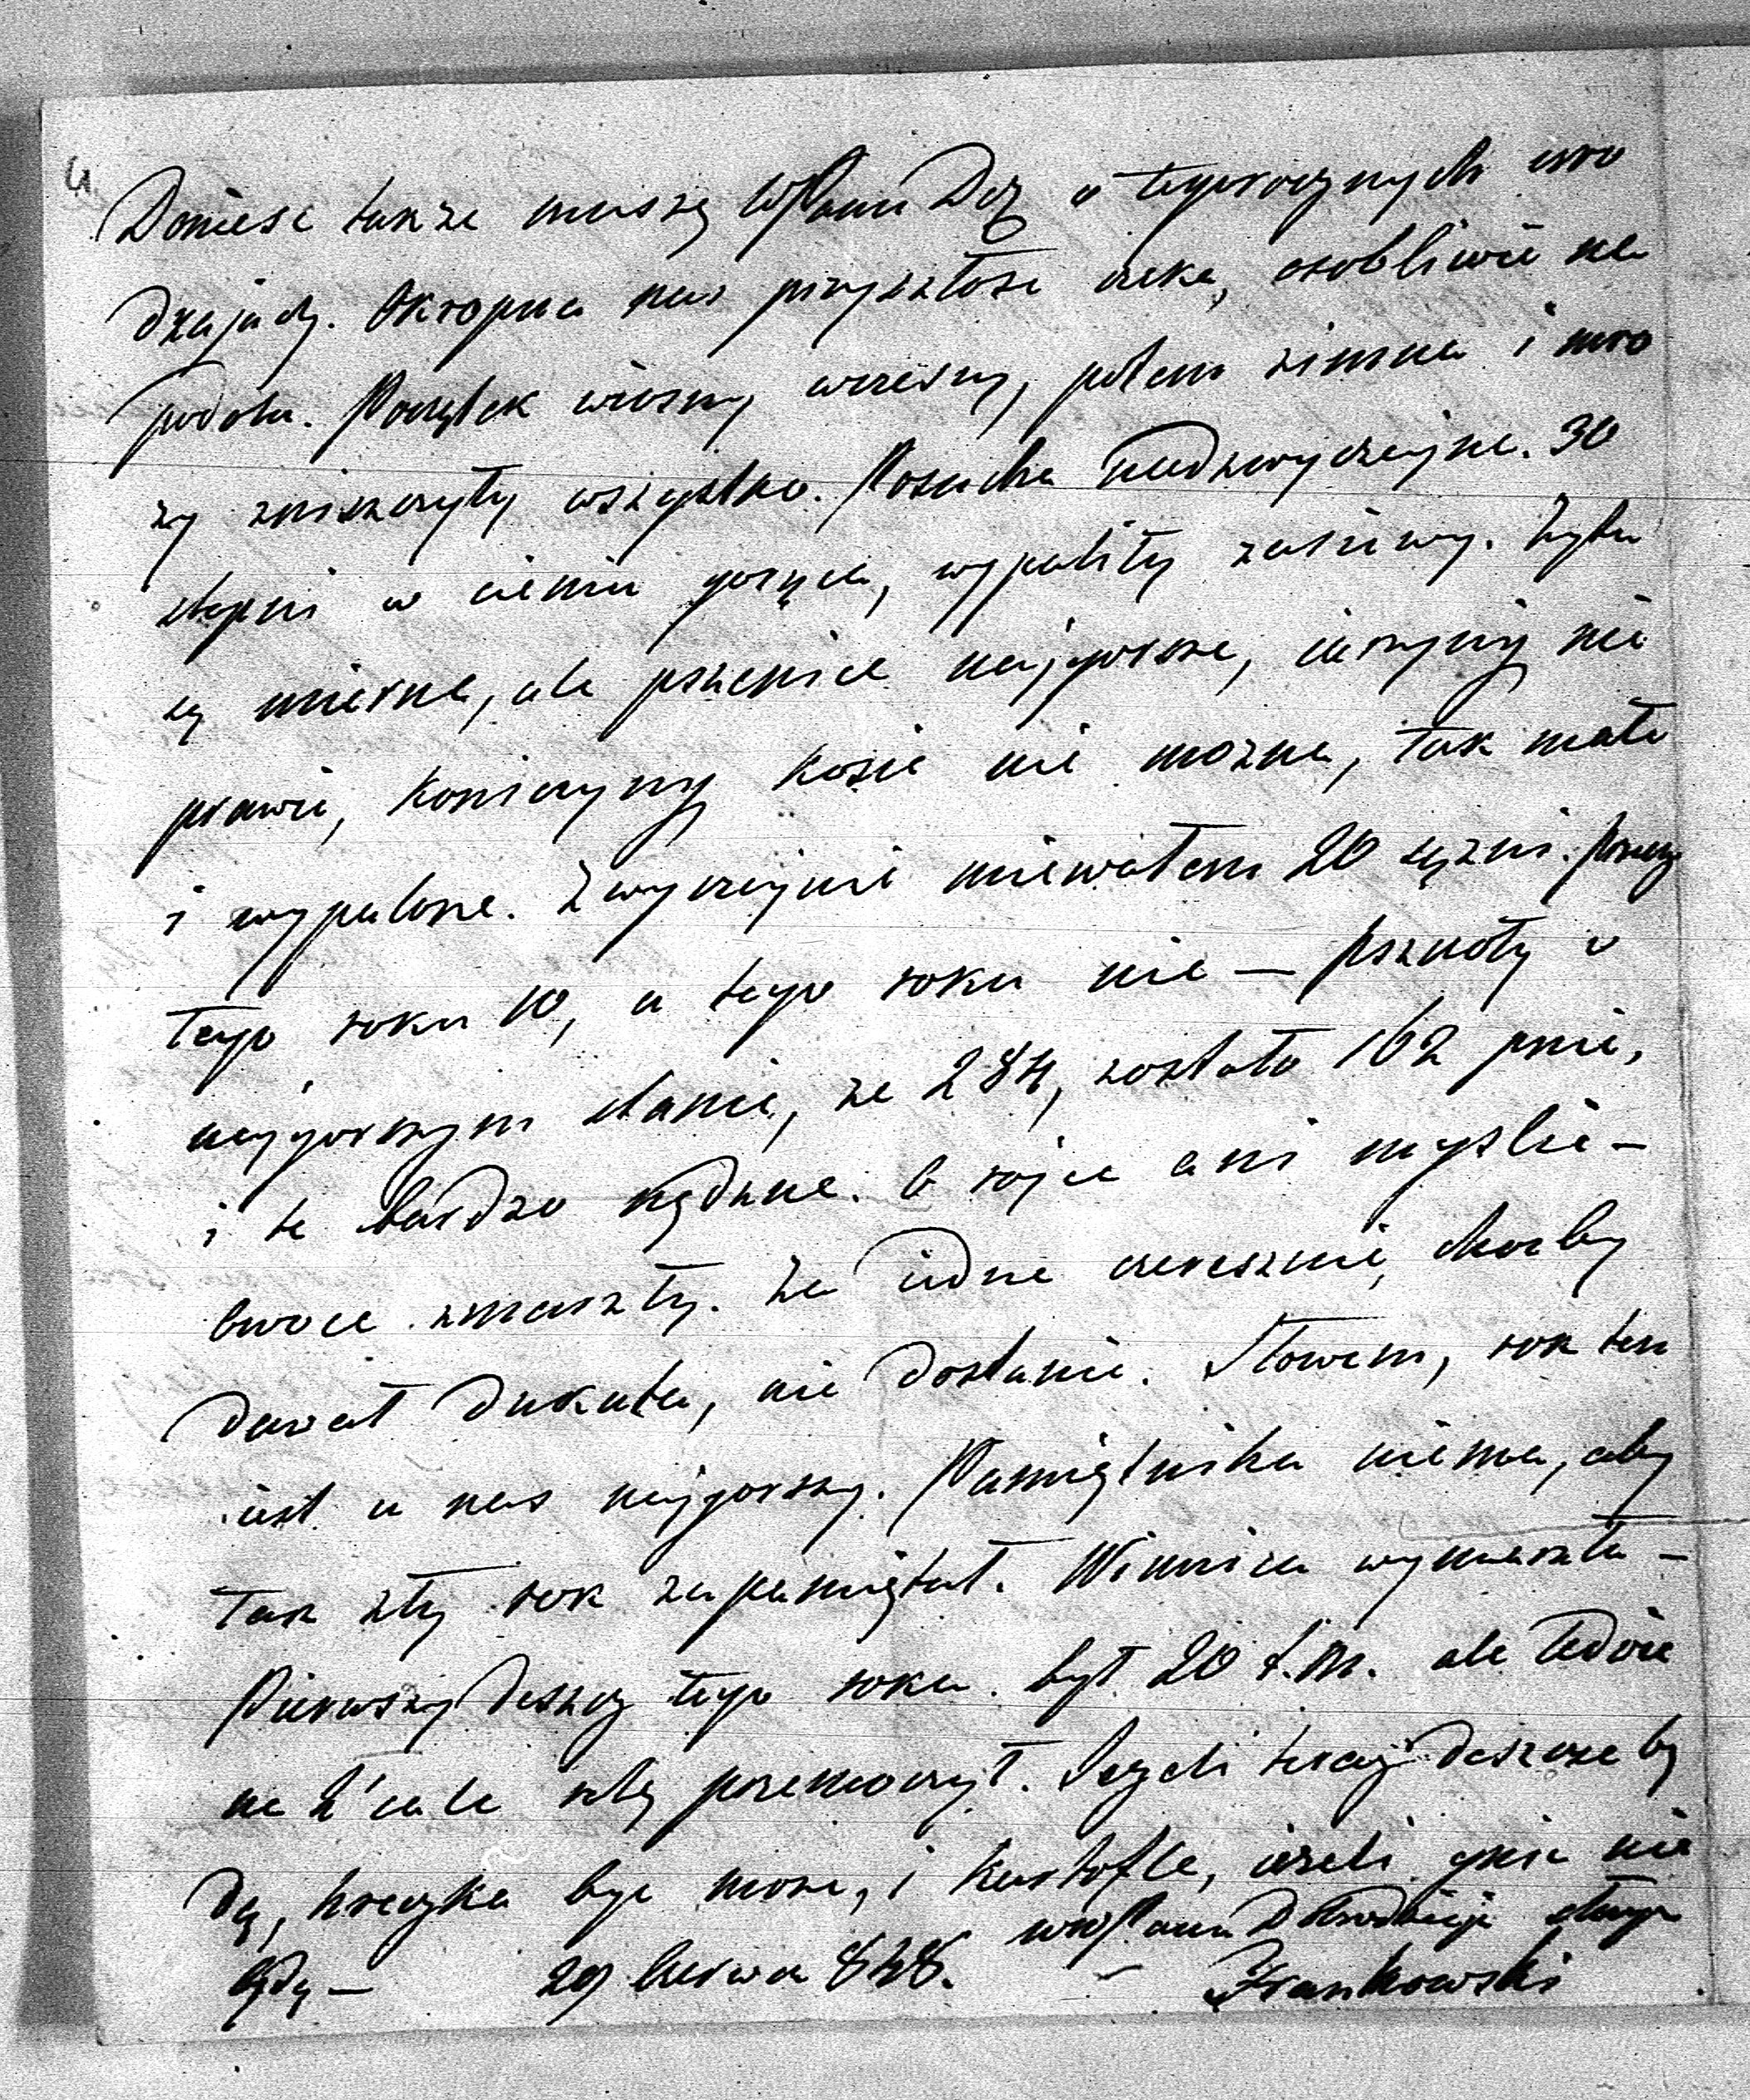 Donieść także muszę WPanu Dz o tegorocznych uro
dzajach. Okropna nas przyszłość czeka, osobliwie na
podola. Początek wiosny wczesny, potem zimna i mro
zy zniszczyły wszystko. Posucha nadzwyczajna. 30
stopni w cieniu gorąca, wypaliły zasiewy. Żyta
są mierne, ale pszenice najgorsze, jarzyny nie
prawie, koniczyny kosić nie można, tak mała
i wypalona. Zwyczajnie miewałem 20 sążni. przesz
tego roku 10, a tego roku nie — pszczoły w
najgorszym stanie, ze 284, zostało 162 pnie,
i te bardzo nędzne. O roje ani myśleć —
Owoce zmarzły. Za jedne czereśnie, choćby
dawał dukata, nie dostanie. Słowem, rok ten
jest u nas najgorszy. Pamiętnika niema, aby
tak zły rok zapamiętał. Winnica wymarzła —
Pierwszy deszcz tego roku był 20 t.m. ale ledwie
na 2 cale rolę przemoczył. Jeżeli teraz deszcze bę
dą, hreczka być może, i kartofle, jeżeli gnić nie
będą — 29 Czerwca 848. — WWPana Dobrodzieja sługa
Frankowski